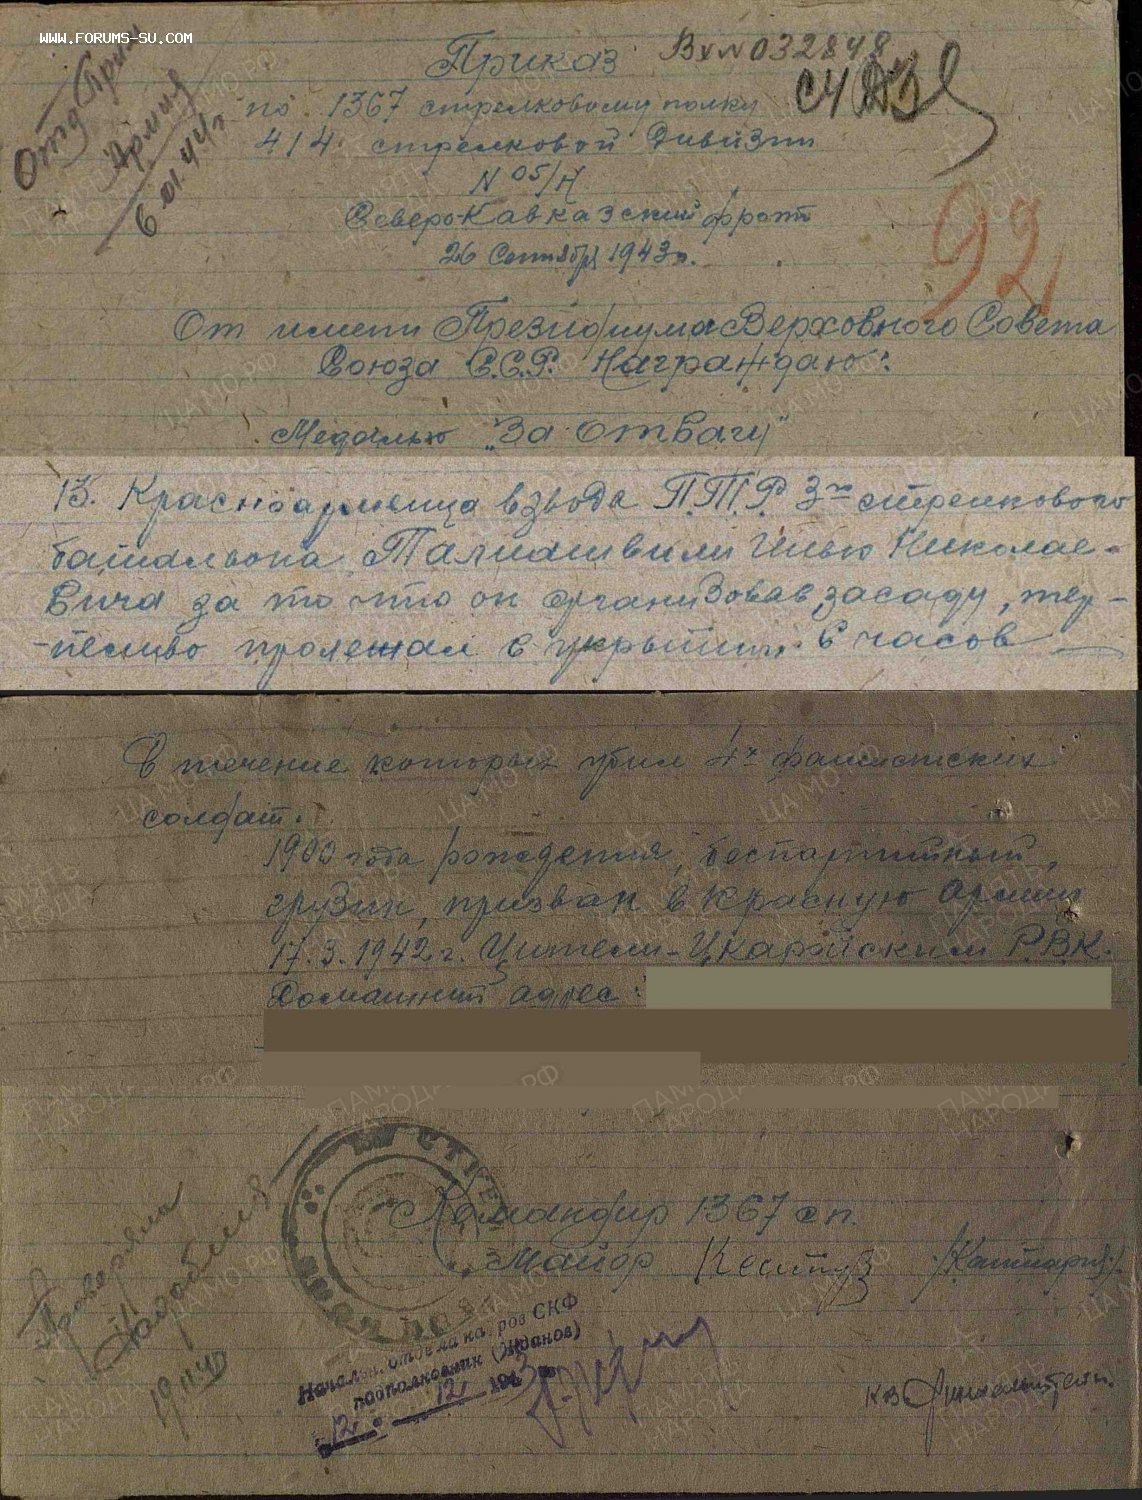 www.forums-su.com
Приказ
Вх N 032848
по 1367 стрелковому полку
414 стрелковой Дивизии
N 05/Н
Северо-Кавказский фронт
26 Сентября 1943г.
Отд
Армия
6.01.44г
92
От имени Президиума Верховного Совета
Союза С.С.Р. Награждаю:
Медалью "За Отвагу"
13. Красноармейца взвода П.Т.Р. 3го стрелкового
баталъона Талиашвили Илью Николае-
вича за то что он организовав засаду, тер-
-пеливо пролежал в укрытии 6 часов
В течение которых убил 4х фашистских
солдат.
1900 года рождения, беспартийный,
грузин, призван в Красную армию
17.3.1942г. Цители-Цкаройским Р.В.К.
Домашний адрес:
Командир 1367 сп.
Майор
Проверяла
Начальн. отдела кадров СКФ
подполковник (Жданов)
12 12 1943
ЦАМО.РФ
ПАМЯТЬ
НАРОДА